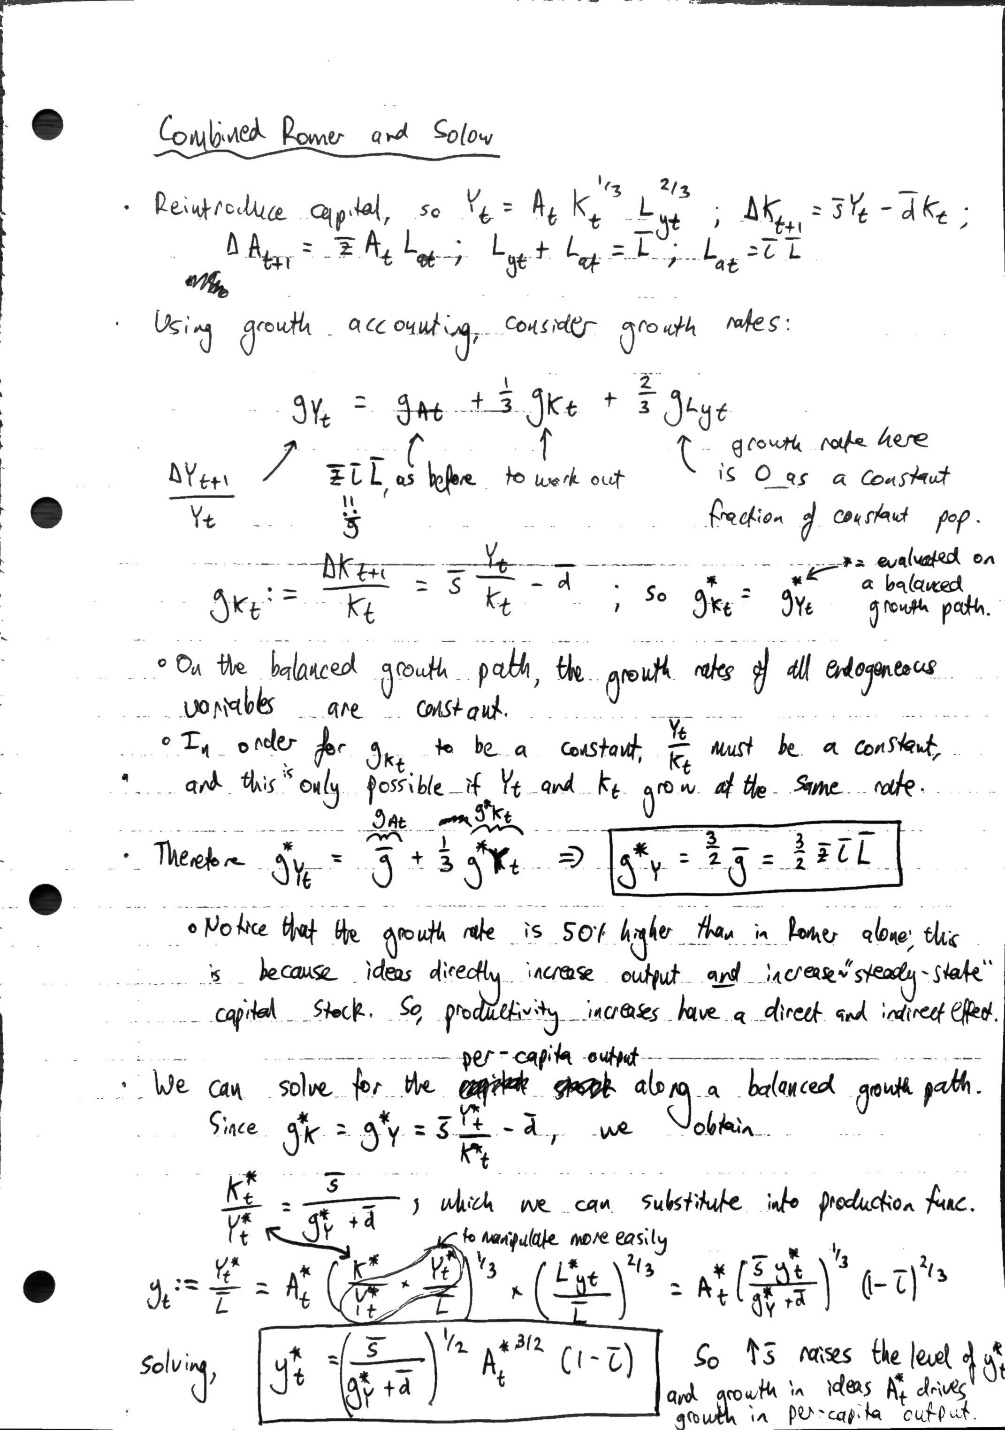 Combined Romer and Solow
· Reintroduce capital, so Y_t = A_t K_t^{1/3} L_{yt}^{2/3} ; ΔK_{t+1} = s̄Y_t − d̄K_t ;
ΔA_{t+1} = z̄ A_t L_{at} ; L_{yt} + L_{at} = L̄ ; L_{at} = l̄ L̄
· Using growth accounting, consider growth rates:
g_{Y_t} = g_{At} + 1/3 g_{K_t} + 2/3 g_{Lyt}
ΔY_{t+1}/Y_t
z̄ l̄ L̄, as before
=: ḡ
to work out
growth rate here
is 0 as a constant
fraction of constant pop.
g_{K_t} := ΔK_{t+1}/K_t = s̄ Y_t/K_t − d̄ ; so g*_{K_t} = g*_{Y_t}
*= evaluated on
a balanced
growth path.
∘ On the balanced growth path, the growth rates of all endogeneous
variables are constant.
∘ In order for g_{K_t} to be a constant, Y_t/K_t must be a constant,
and this is only possible if Y_t and K_t grow at the same rate.
g_{At} g*_{K_t}
· Therefore g*_{Y_t} = ḡ + 1/3 g*_{Y_t} ⇒ g*_Y = 3/2 ḡ = 3/2 z̄ l̄ L̄
∘ Notice that the growth rate is 50% higher than in Romer alone; this
is because ideas directly increase output and increase "steady-state"
capital stock. So, productivity increases have a direct and indirect effect.
per-capita output
· We can solve for the along a balanced growth path.
Since g*_K = g*_Y = s̄ Y*_t/K*_t − d̄, we obtain
K*_t/Y*_t = s̄/(g*_Y + d̄) ; which we can substitute into production func.
to manipulate more easily
y_t := Y*_t/L̄ = A*_t (K*/Y*_t × Y*_t/L̄)^{1/3} × (L*_{yt}/L̄)^{2/3} = A*_t (s̄ y*_t/(g*_Y + d̄))^{1/3} (1−l̄)^{2/3}
solving, y*_t = (s̄/(g*_Y + d̄))^{1/2} A*_t^{3/2} (1−l̄)
So ↑s̄ raises the level of y*_t
and growth in ideas A*_t drives
growth in per-capita output.